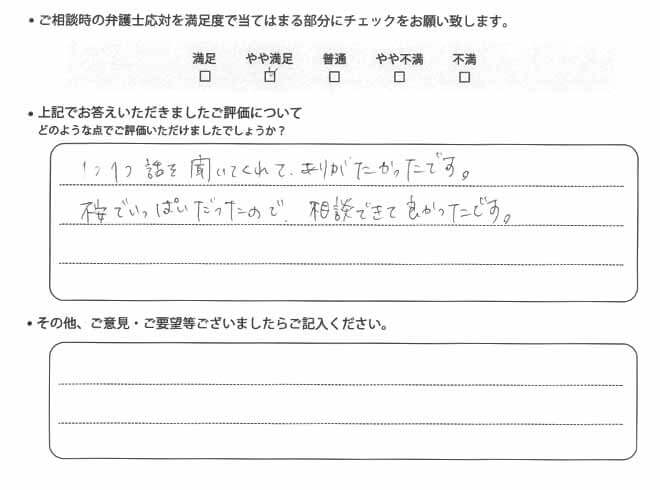 • ご相談時の弁護士応対を満足度で当てはまる部分にチェックをお願い致します。
満足 やや満足 普通 やや不満 不満
□ ☑ □ □ □
• 上記でお答えいただきましたご評価について
どのような点でご評価いただけましたでしょうか？
1つ1つ話を聞いてくれて、ありがたかったです。
不安でいっぱいだったので、相談できて良かったです。
• その他、ご意見・ご要望等ございましたらご記入ください。